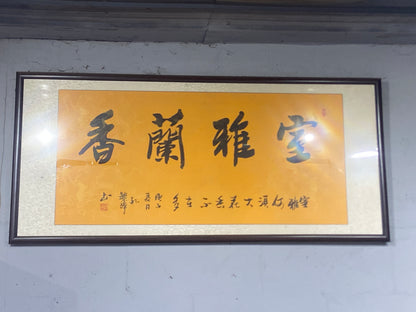 室雅蘭香
室雅何須大 花香不在多